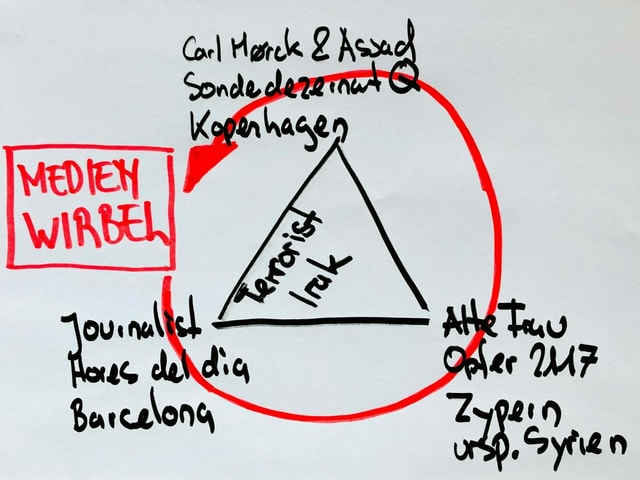 Carl Mørck & Assad
Sonderdezernat Q
Kopenhagen
MEDIEN
WIRBEL
Terrorist
Irak
Journalist
Hores del dia
Barcelona
Alte Frau
Opfer 2117
Zypern
ursp. Syrien